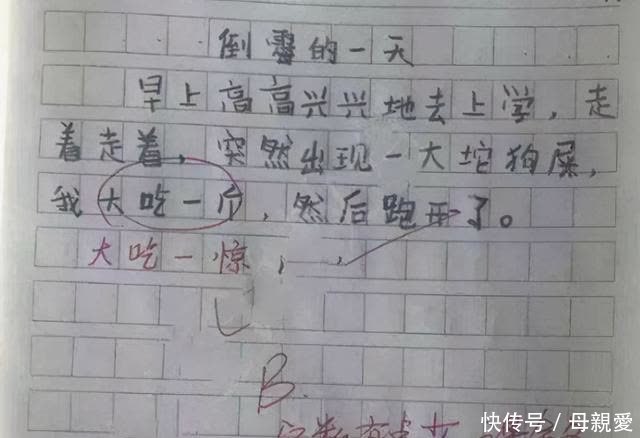 倒霉的一天
早上高高兴兴地去上学，走
着走着，突然出现一大坨狗屎，
我大吃一斤，然后跑开了。
大吃一惊，
B.
快传号／母親愛